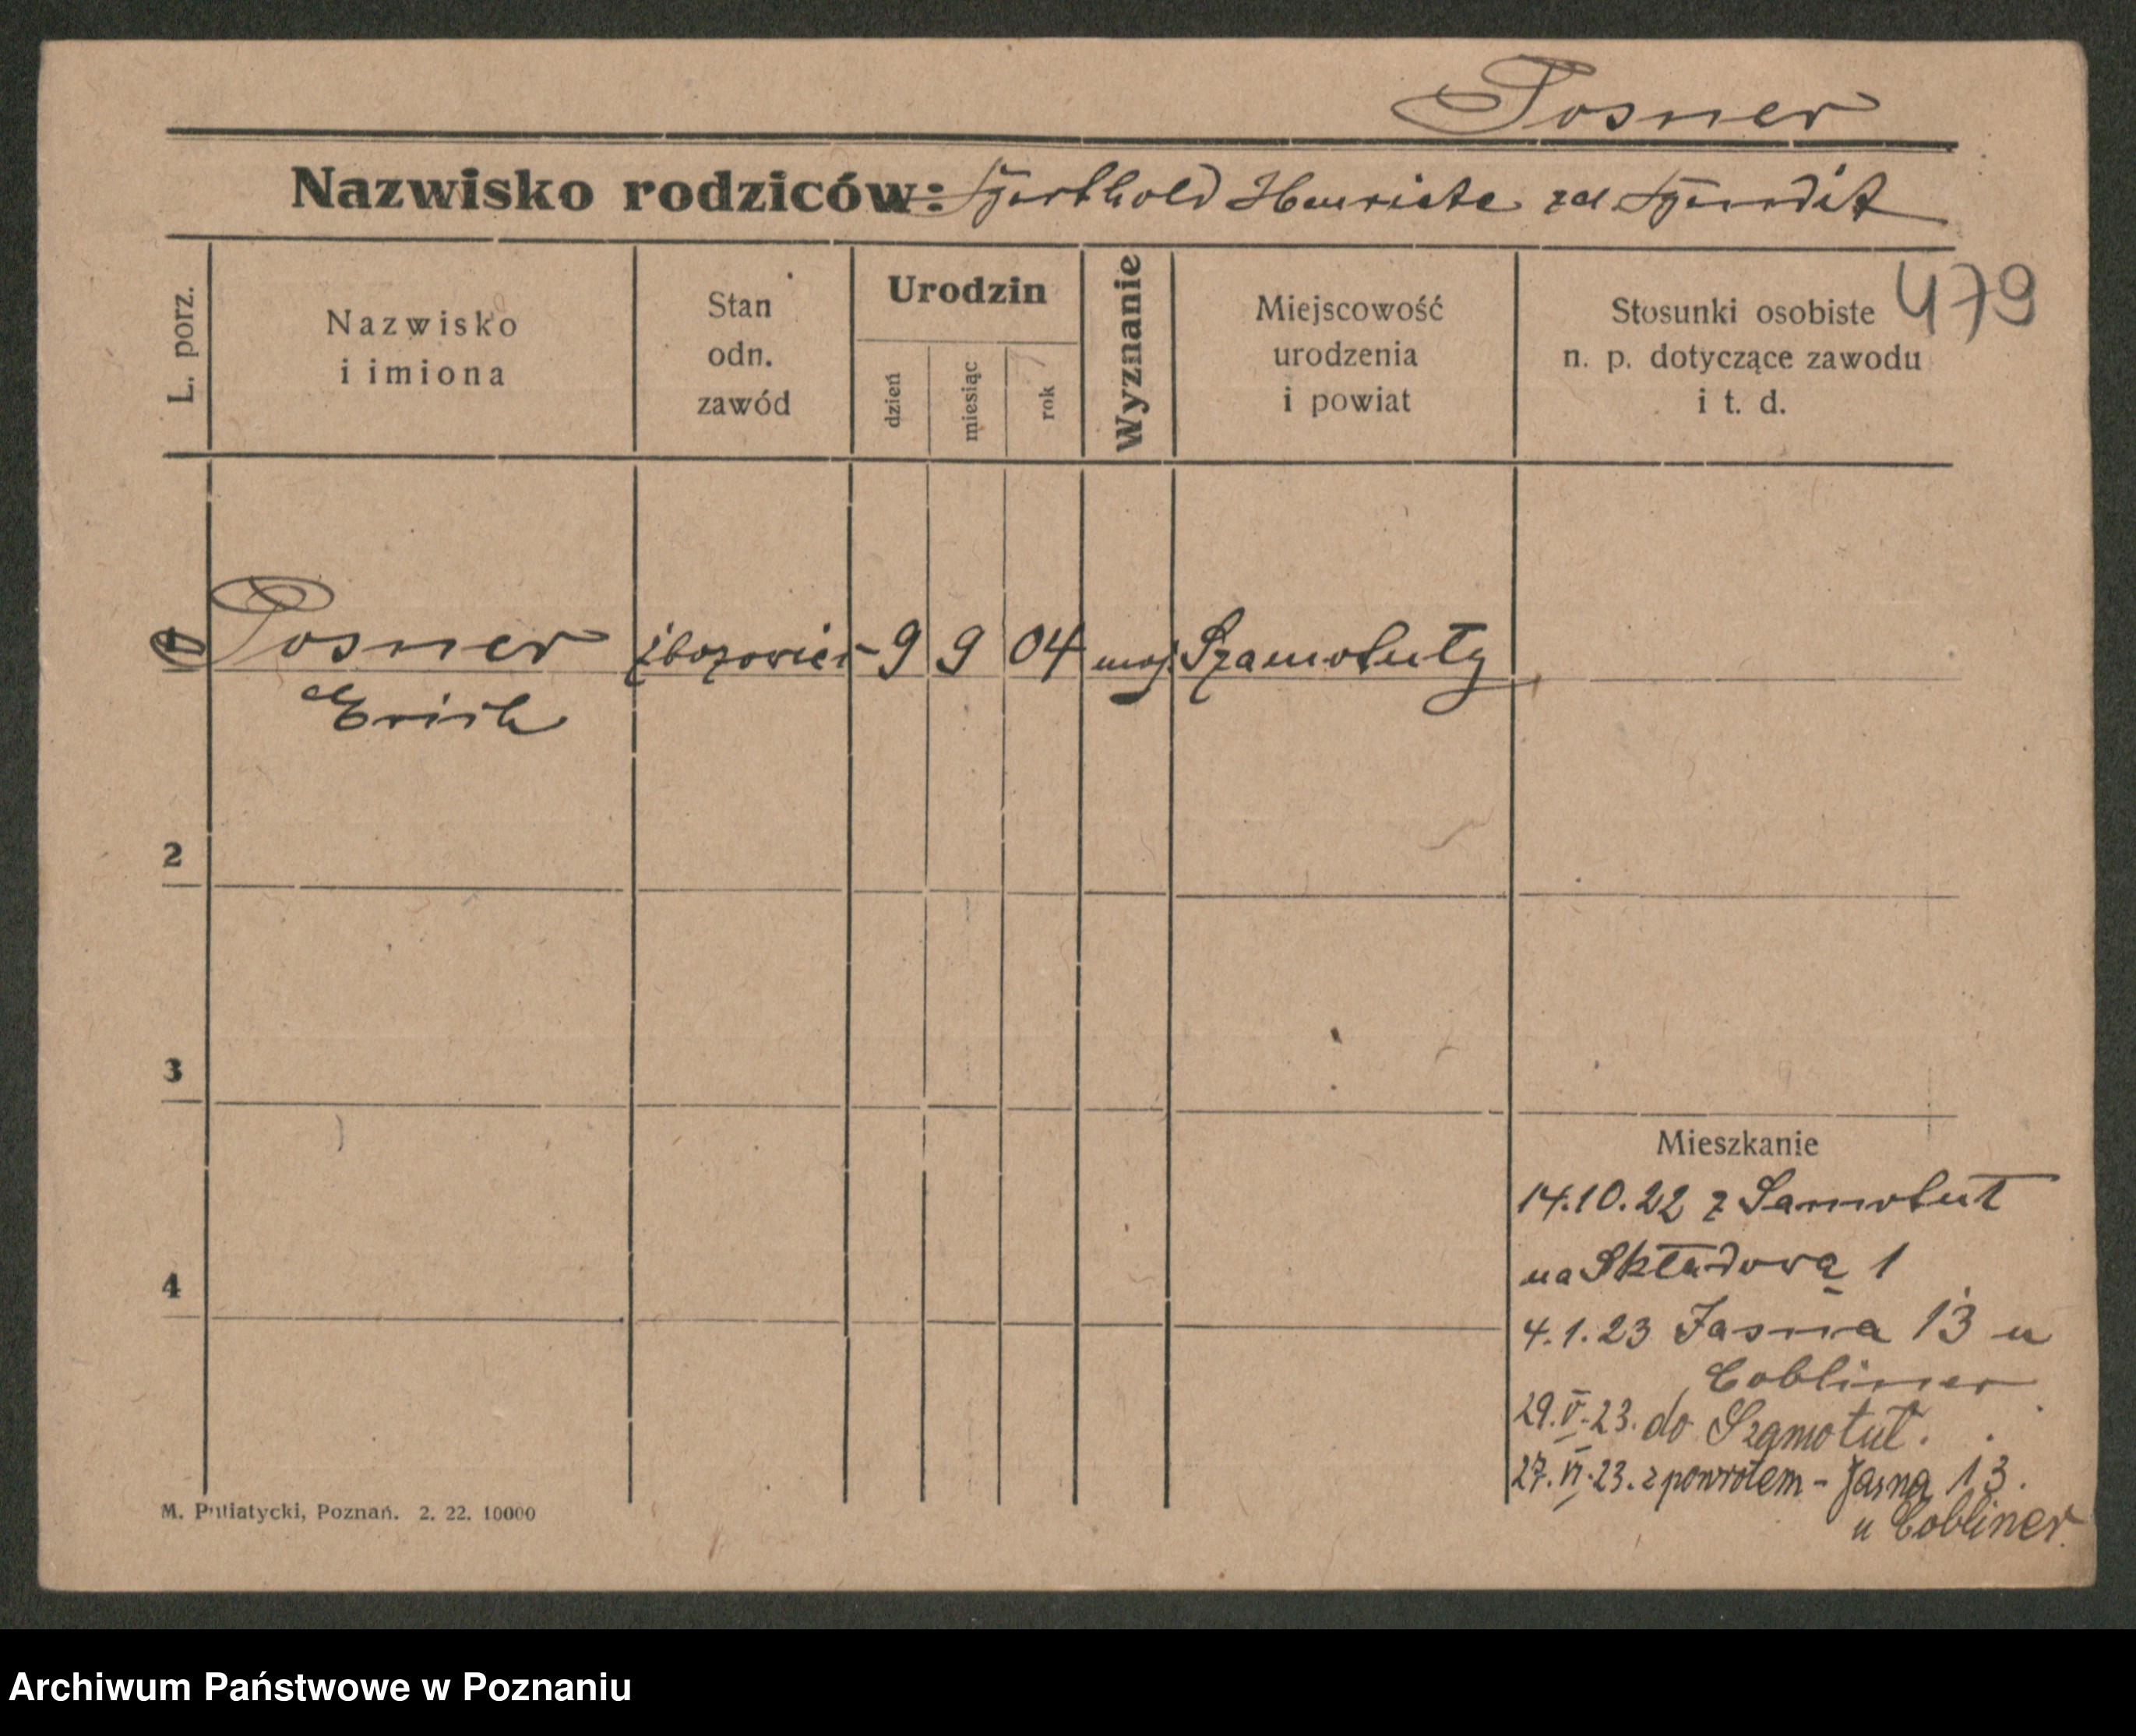 Posner
Nazwisko rodziców: Berthold Henriete zd
479
L. porz.
Nazwisko
i imiona
Stan
odn.
zawód
Urodzin
dzień
miesiąc
rok
Wyznanie
Miejscowość
urodzenia
i powiat
Stosunki osobiste
n. p. dotyczące zawodu
i t. d.
1 Posner zbozowiec 9 9 04 moj. Szamotuły
Erich
2
3
4
Mieszkanie
14.10.22 z Samotuł
na Składową 1
4.1.23 Jasna 13 u
Cobliner
29.V.23. do Szamotuł.
27.VI.23. z powrotem - Jasna 13.
u Cobliner.
M. Putiatycki, Poznań. 2. 22. 10000
Archiwum Państwowe w Poznaniu